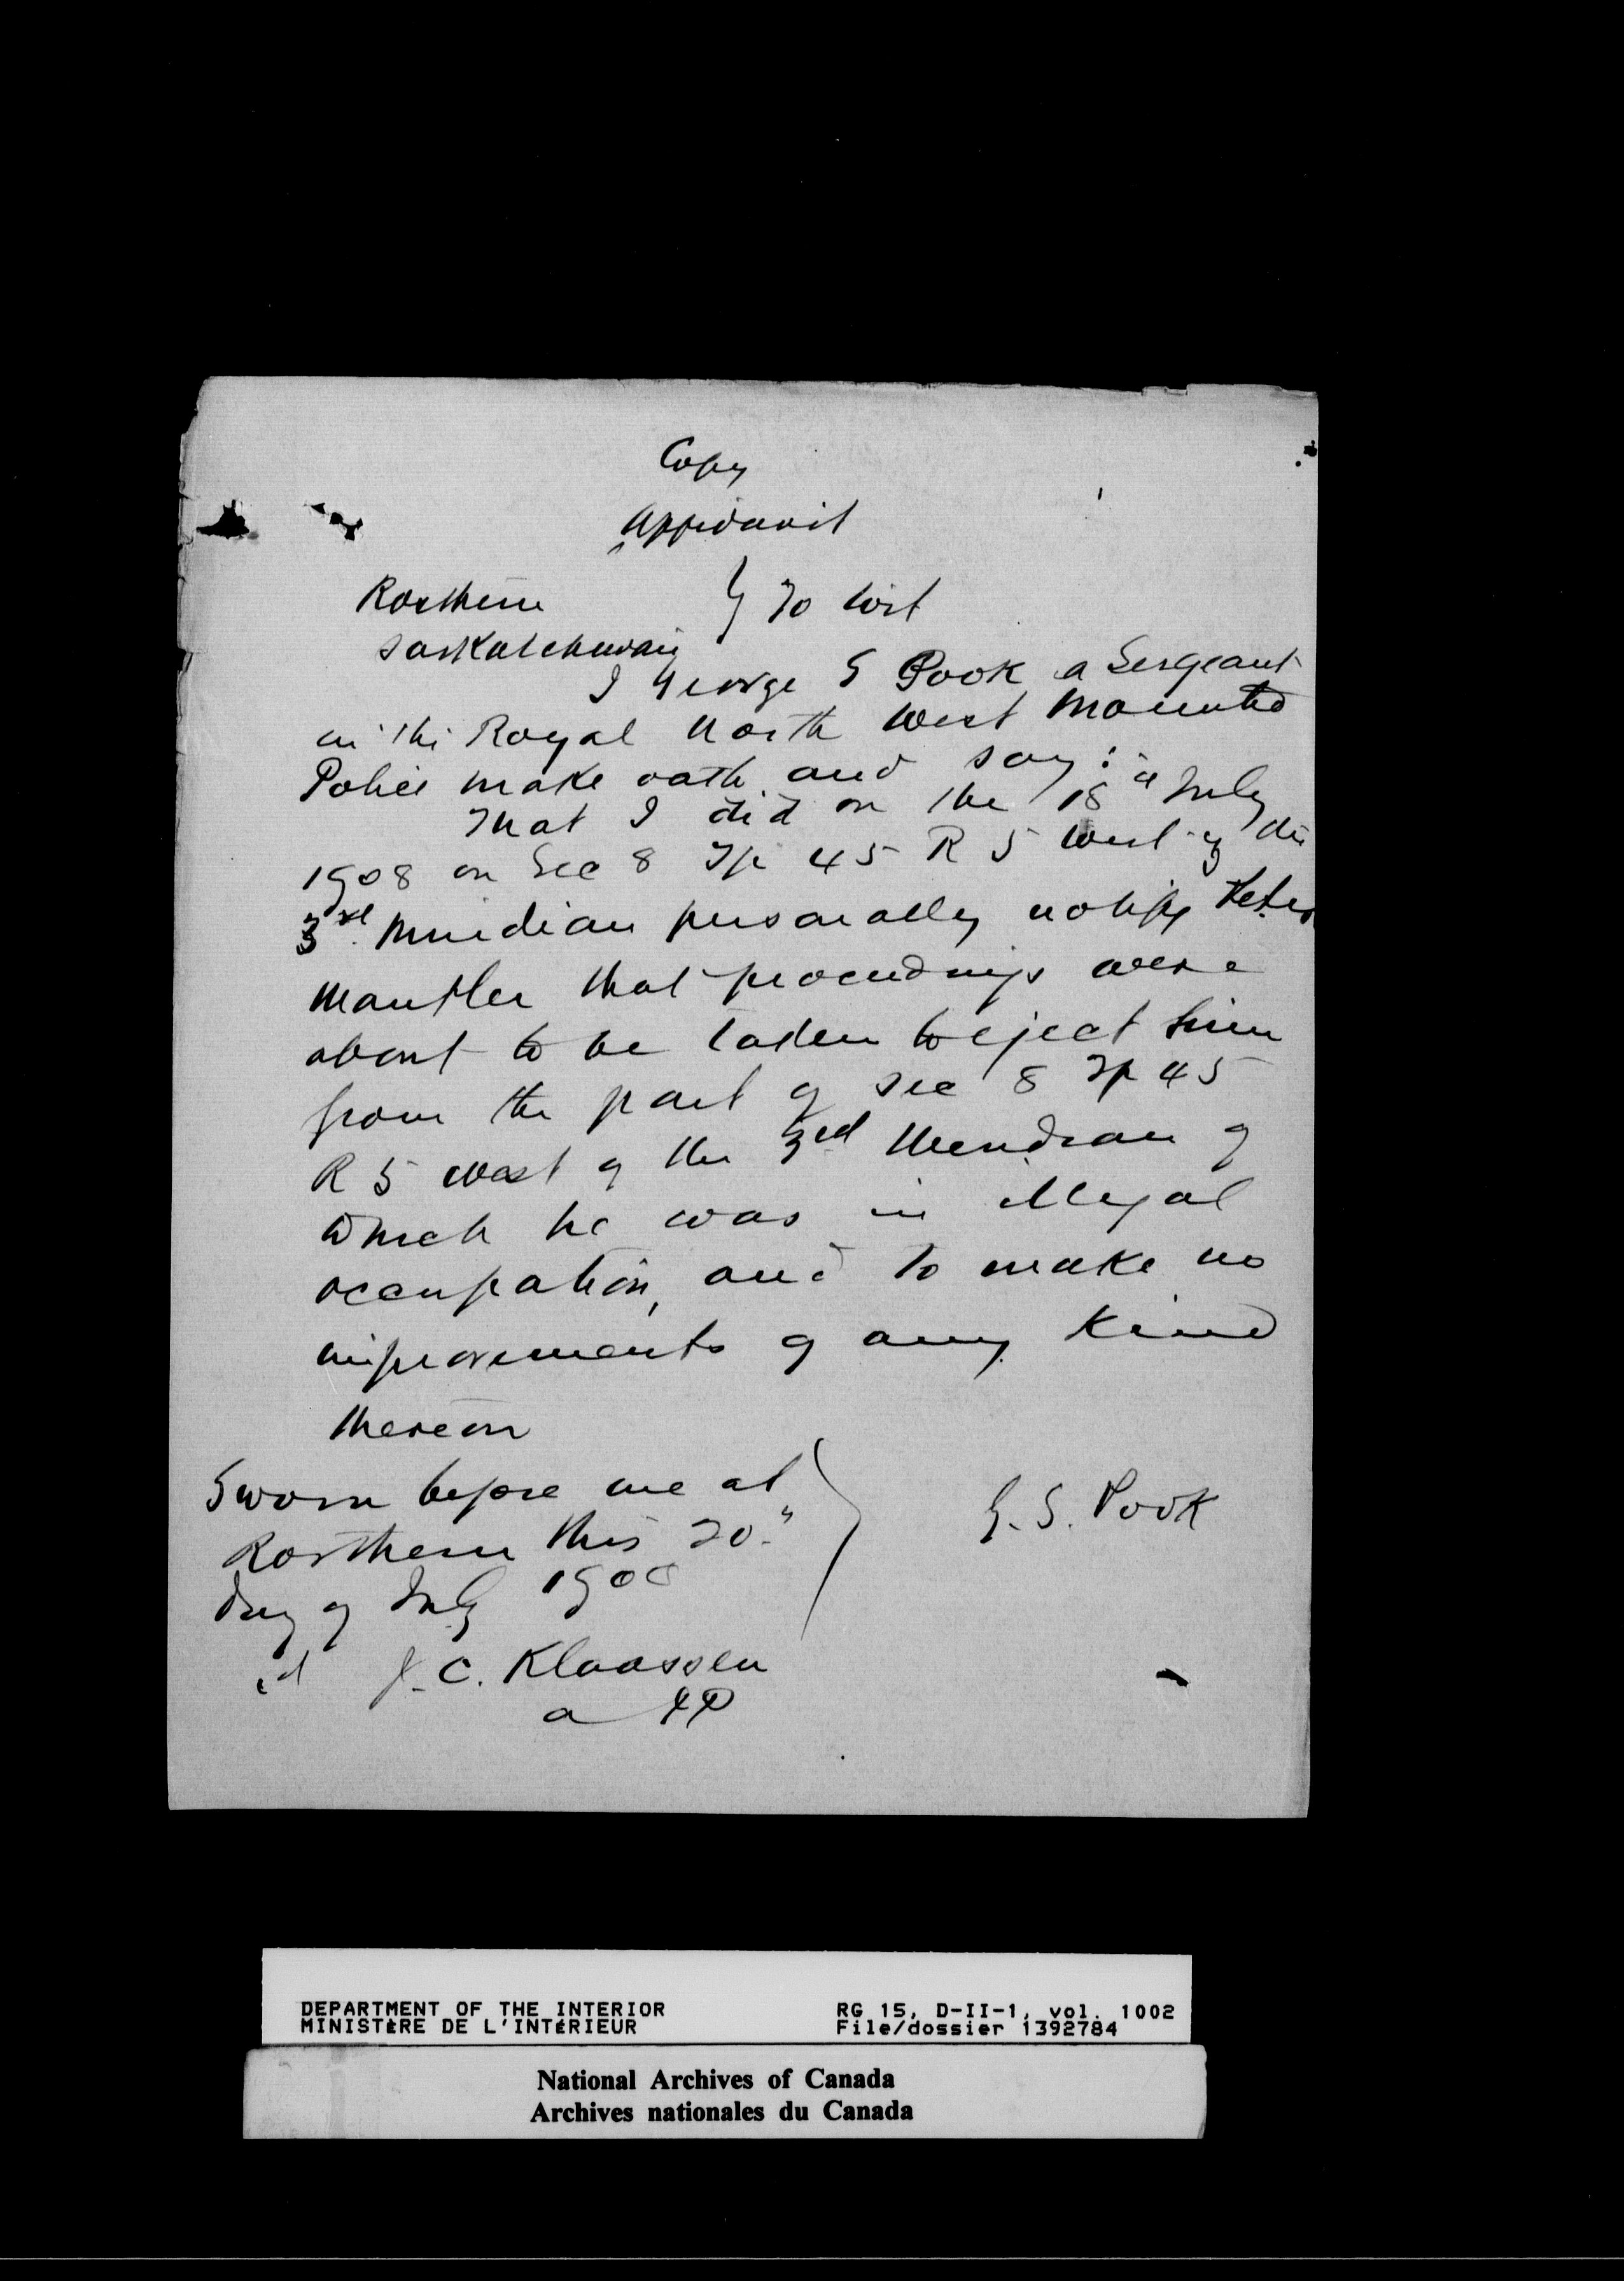 Copy
Affidavit
Rosthern } To Wit
Saskatchewan
I George S Pook a Sergeant
in the Royal North West Mounted
Police make oath and say:
That I did on the 18" July
1908 on Sec 8 Tp 45 R 5 West of the
3rd Meridian personally notify Peter
Mantler that proceedings were
about to be taken to eject him
from the part of Sec 8 Tp 45
R 5 west of the 3rd Meridian of
which he was in illegal
occupation, and to make no
improvements of any kind
thereon
Sworn before me at
Rosthern this 20" G. S. Pook
day of July 1908
J. C. Klaassen
a JP
DEPARTMENT OF THE INTERIOR RG 15, D-II-1, vol. 1002
MINISTÈRE DE L'INTÉRIEUR File/dossier 1392784
National Archives of Canada
Archives nationales du Canada